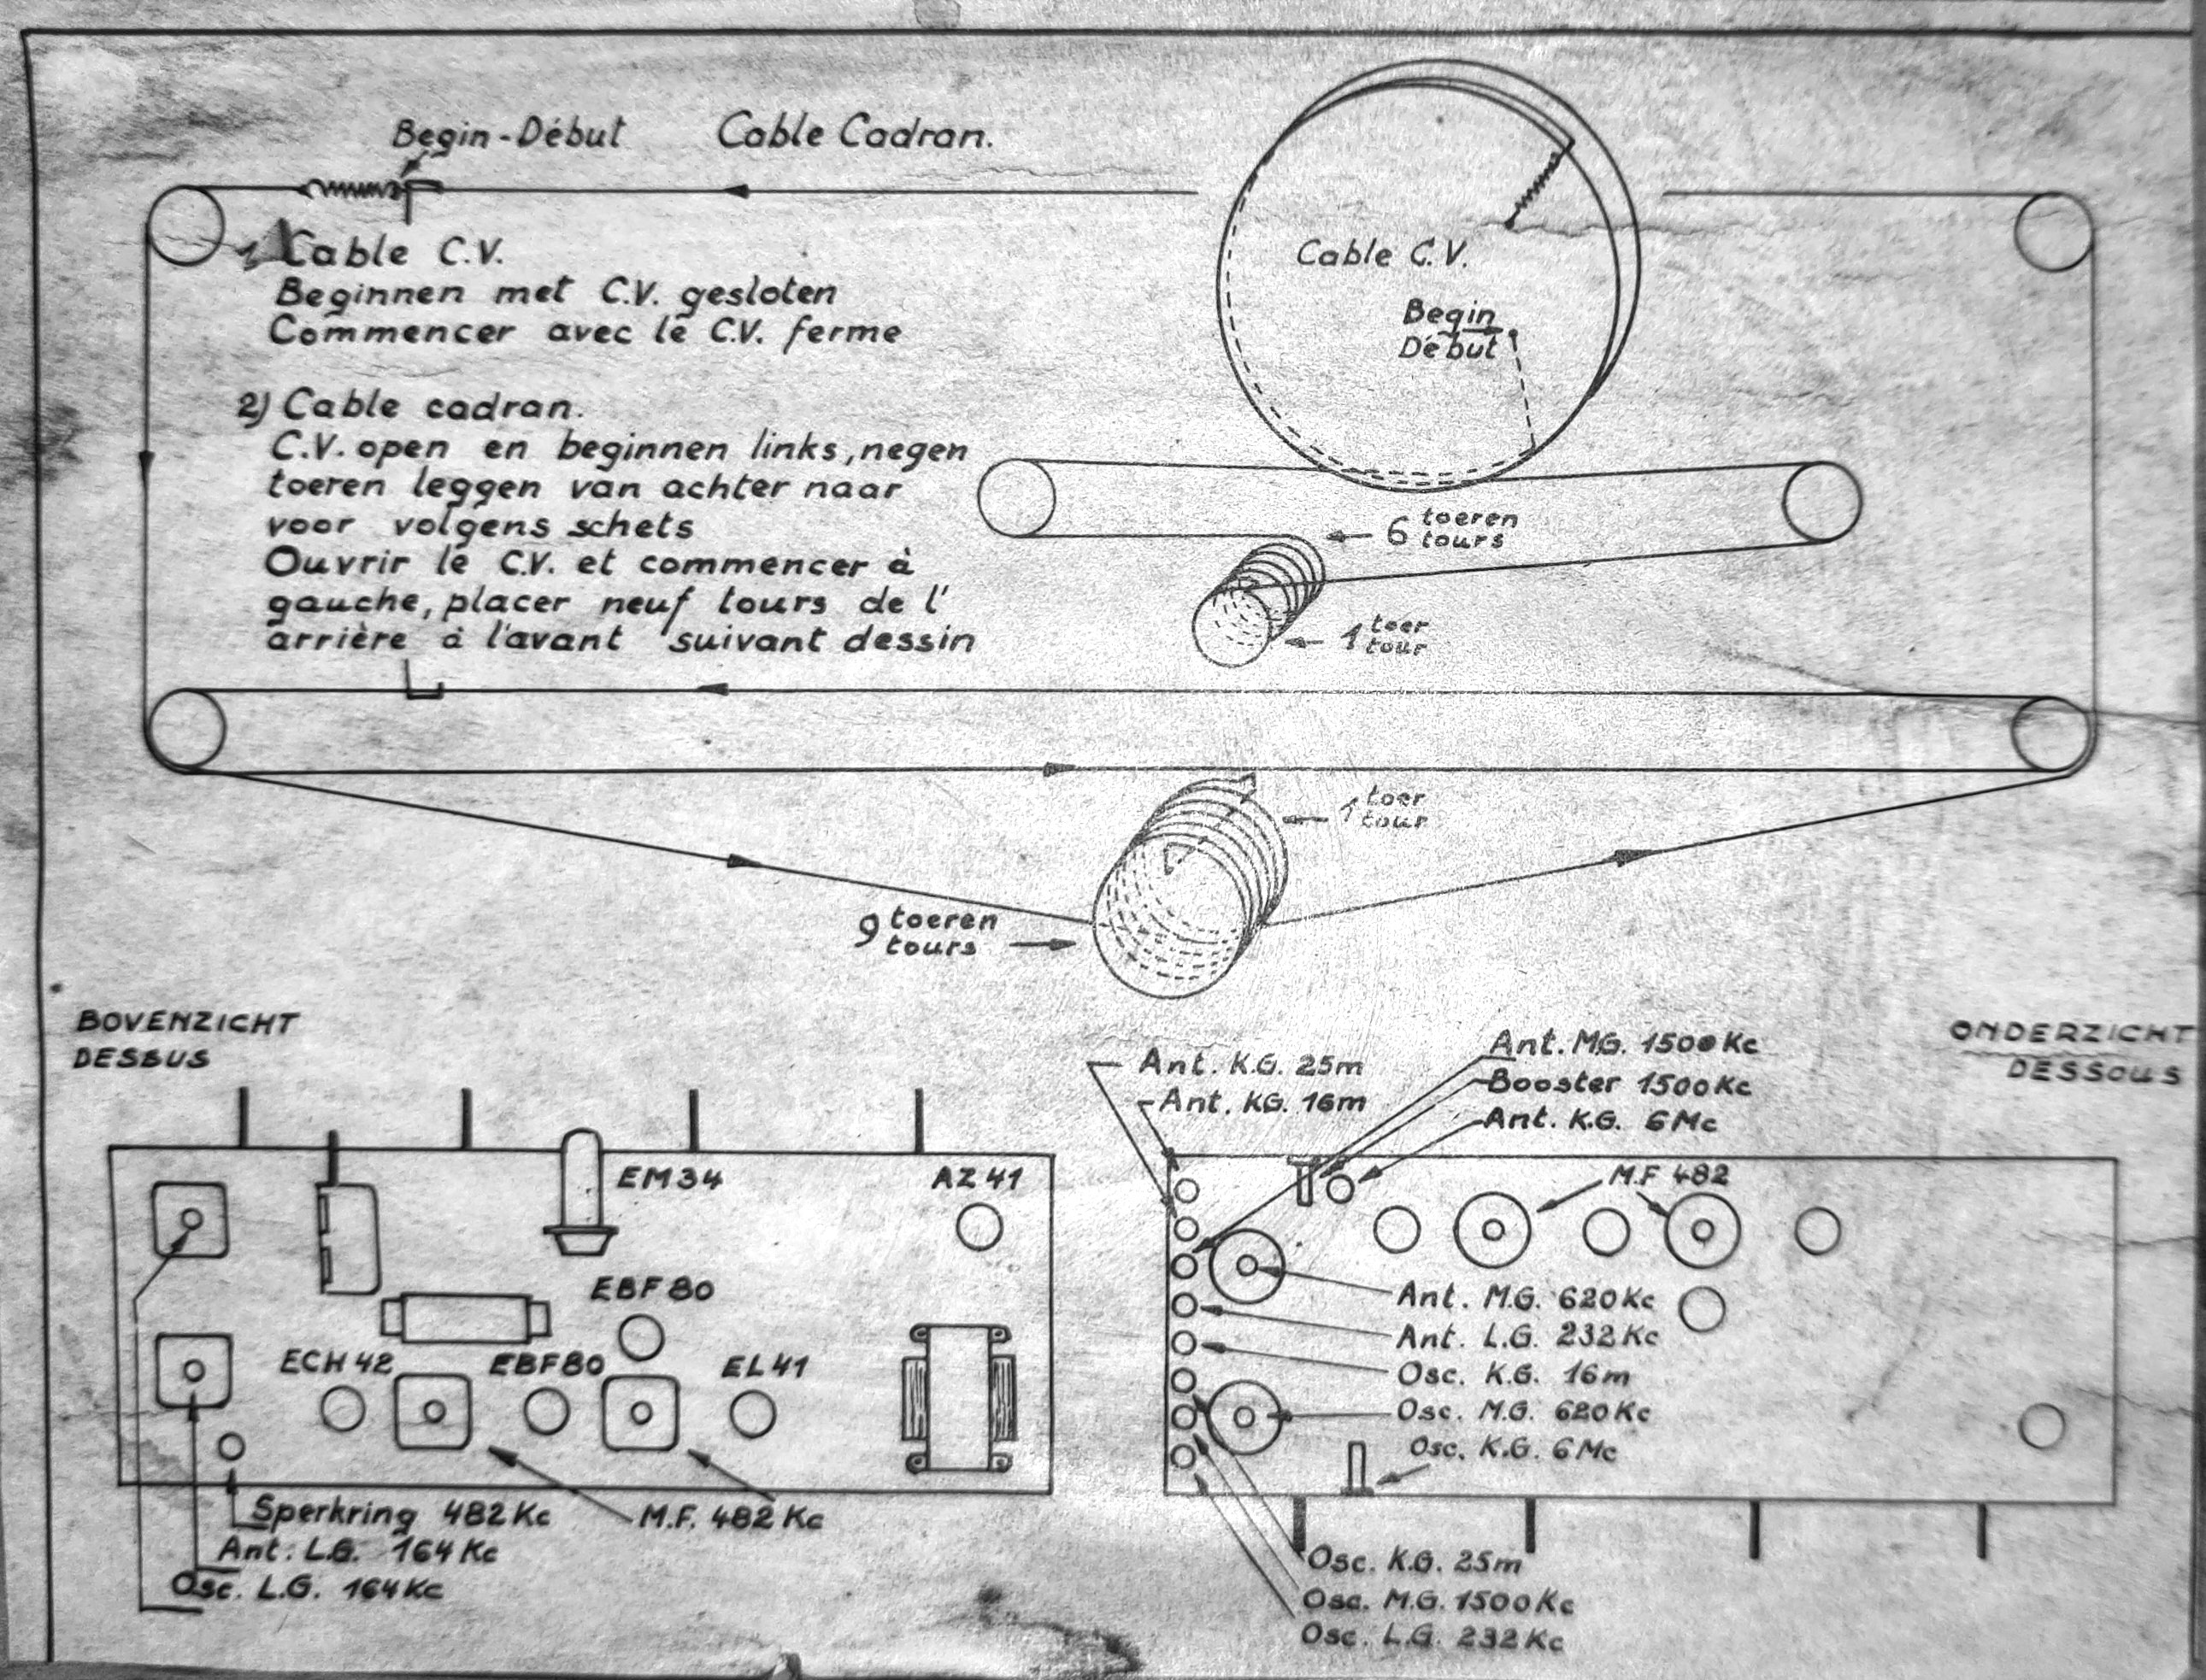 Begin-Début
Cable Cadran.
1) Cable C.V.
Beginnen met C.V. gesloten
Commencer avec le C.V. ferme
2) Cable cadran.
C.V. open en beginnen links, negen
toeren leggen van achter naar
voor volgens schets
Ouvrir le C.V. et commencer à
gauche, placer neuf tours de l'
arrière à l'avant suivant dessin
Cable C.V.
Begin
Début
6 toeren
tours
1 toer
tour
1 toer
tour
9 toeren
tours
BOVENZICHT
DESSUS
EM34
AZ41
EBF80
ECH42
EBF80
EL41
Sperkring 482Kc
M.F. 482Kc
Ant. L.G. 164Kc
Osc. L.G. 164Kc
ONDERZICHT
DESSOUS
Ant. K.G. 25m
Ant. KG. 16m
Ant. M.G. 1500Kc
Booster 1500Kc
Ant. K.G. 6Mc
M.F 482
Ant. M.G. 620Kc
Ant. L.G. 232Kc
Osc. K.G. 16m
Osc. M.G. 620Kc
Osc. K.G. 6Mc
Osc. K.G. 25m
Osc. M.G. 1500Kc
Osc. L.G. 232Kc